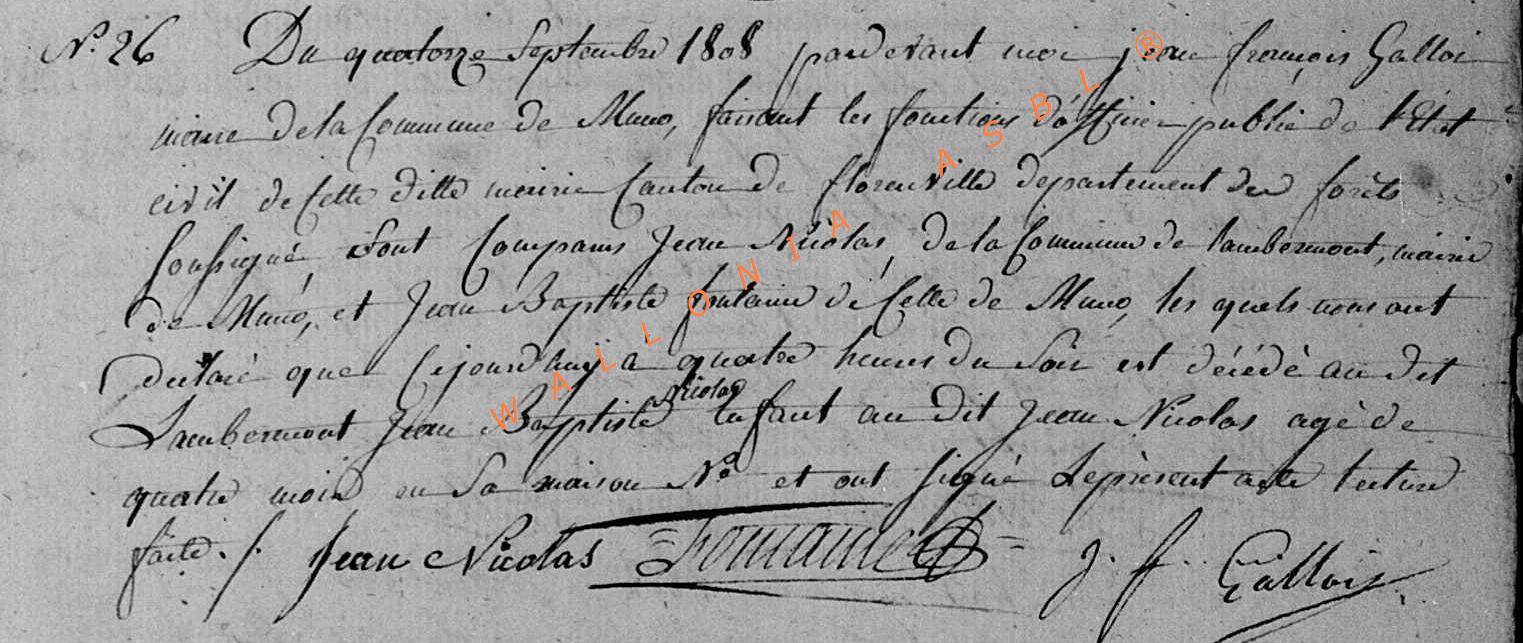 N.º 26 Du quatorze Septembre 1808 pardevant moi jean françois Gallois
maire de la Commune de Muno, faisant les fonctions d'officier public de l'Etat
civil de Cette ditte mairie Canton de florenville departement des forêts
Soussigné, Sont Comparus Jean Nicolas, de la Commune de lambermont, mairie
de Muno, et Jean Baptiste fontaine de Celle de Muno, les quels nous ont
declaré que Cejourd'huy a quatre heures du Soir est décédé au dit
Lambermont Jean Baptiste Nicolas Enfant au dit Jean Nicolas agé de
quatre mois en Sa maison N.º et ont Signé Le présent acte lecture
faite ./. Jean Nicolas Fontaine J. f. Gallois
WALLONIA ASBL ®